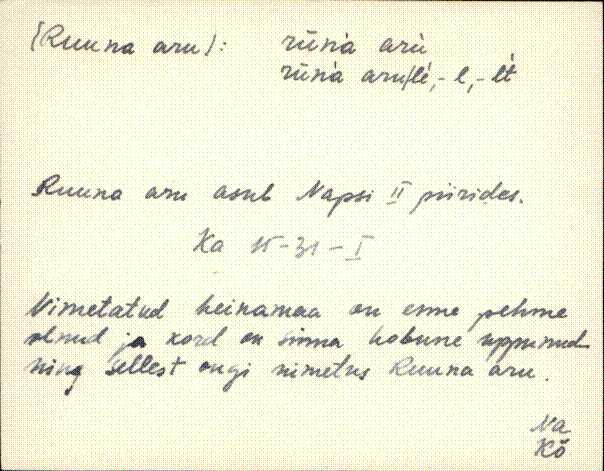 (Ruuna aru): rūnà arù
rūnà aru/lè, -l, -lt
Ruuna aru asub Napsi II piirides.
Ka II-31-I
Nimetatud heinamaa on enne pehme
olnud ja kord on sinna hobune uppunud
ning sellest ongi nimetus Ruuna aru.
Na
Kõ